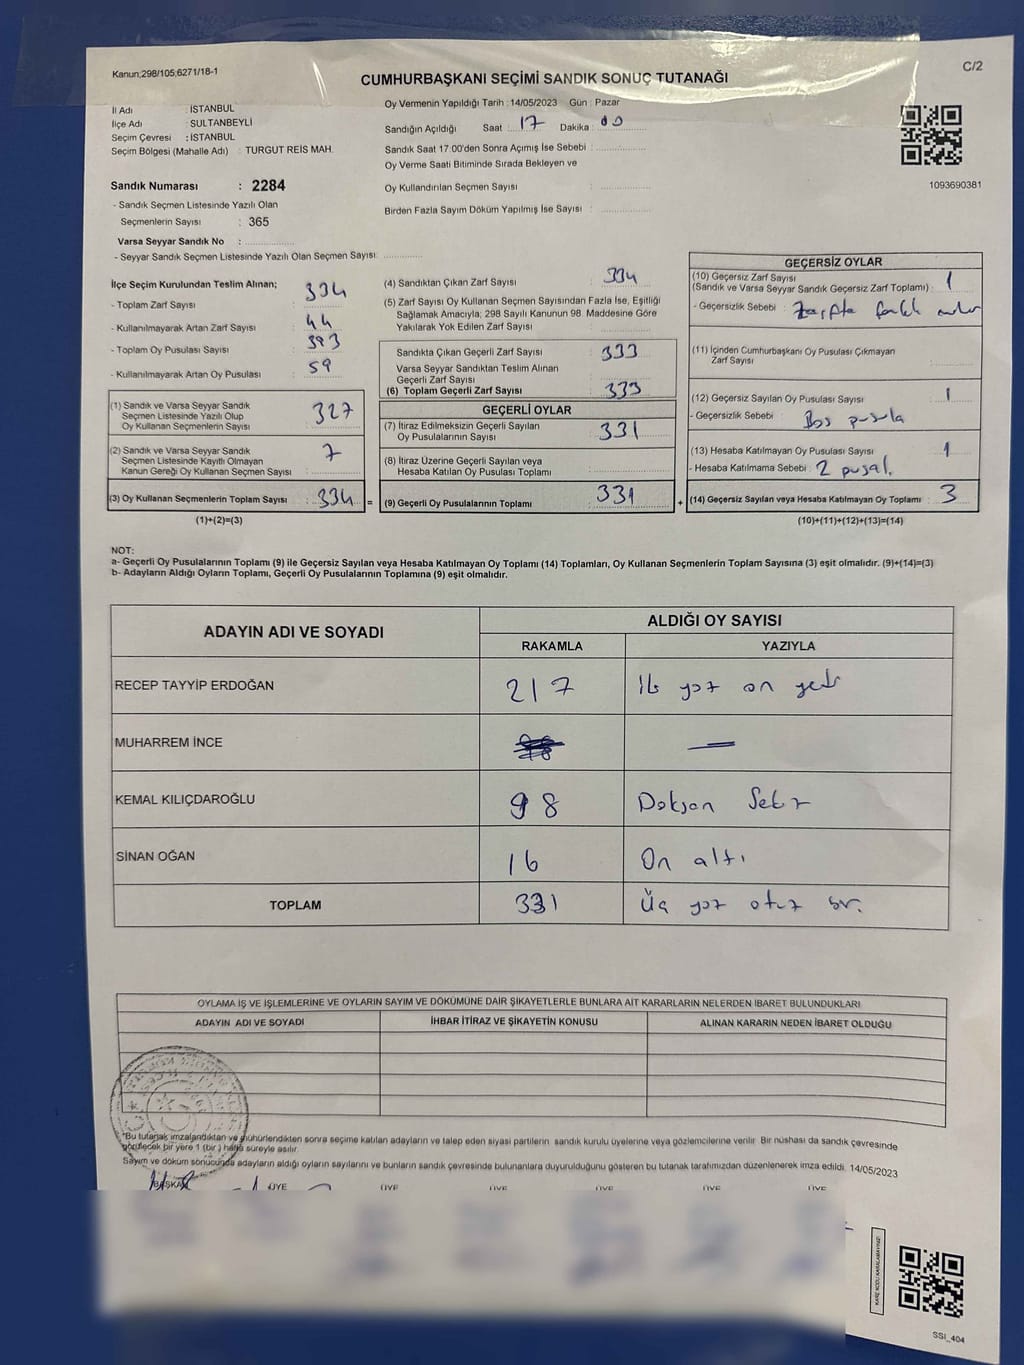 Kanun;298/105;6271/18-1
C/2
CUMHURBAŞKANI SEÇİMİ SANDIK SONUÇ TUTANAĞI
İl Adı : İSTANBUL
İlçe Adı : SULTANBEYLİ
Seçim Çevresi : İSTANBUL
Seçim Bölgesi (Mahalle Adı) : TURGUT REİS MAH.
Oy Vermenin Yapıldığı Tarih : 14/05/2023 Gün : Pazar
Sandığın Açıldığı Saat : 17 Dakika : 00
Sandık Saat 17:00'den Sonra Açımış İse Sebebi :
Oy Verme Saati Bitiminde Sırada Bekleyen ve
Oy Kullandırılan Seçmen Sayısı :
Birden Fazla Sayım Döküm Yapılmış İse Sayısı :
1093690381
Sandık Numarası : 2284
- Sandık Seçmen Listesinde Yazılı Olan
Seçmenlerin Sayısı : 365
Varsa Seyyar Sandık No :
- Seyyar Sandık Seçmen Listesinde Yazılı Olan Seçmen Sayısı:
İlçe Seçim Kurulundan Teslim Alınan;
- Toplam Zarf Sayısı : 334
- Kullanılmayarak Artan Zarf Sayısı : 44
- Toplam Oy Pusulası Sayısı : 393
- Kullanılmayarak Artan Oy Pusulası : 59
(1) Sandık ve Varsa Seyyar Sandık
Seçmen Listesinde Yazılı Olup
Oy Kullanan Seçmenlerin Sayısı : 327
(2) Sandık ve Varsa Seyyar Sandık
Seçmen Listesinde Kayıtlı Olmayan
Kanun Gereği Oy Kullanan Seçmen Sayısı : 7
(3) Oy Kullanan Seçmenlerin Toplam Sayısı : 334 =
(1)+(2)=(3)
(4) Sandıktan Çıkan Zarf Sayısı : 334
(5) Zarf Sayısı Oy Kullanan Seçmen Sayısından Fazla İse, Eşitliği
Sağlamak Amacıyla; 298 Sayılı Kanunun 98. Maddesine Göre
Yakılarak Yok Edilen Zarf Sayısı :
Sandıkta Çıkan Geçerli Zarf Sayısı : 333
Varsa Seyyar Sandıktan Teslim Alınan
Geçerli Zarf Sayısı :
(6) Toplam Geçerli Zarf Sayısı : 333
GEÇERLİ OYLAR
(7) İtiraz Edilmeksizin Geçerli Sayılan
Oy Pusulalarının Sayısı : 331
(8) İtiraz Üzerine Geçerli Sayılan veya
Hesaba Katılan Oy Pusulası Toplamı :
(9) Geçerli Oy Pusulalarının Toplamı : 331 +
GEÇERSİZ OYLAR
(10) Geçersiz Zarf Sayısı
(Sandık ve Varsa Seyyar Sandık Geçersiz Zarf Toplamı) : 1
- Geçersizlik Sebebi : Zarfta farklı
(11) İçinden Cumhurbaşkanı Oy Pusulası Çıkmayan
Zarf Sayısı :
(12) Geçersiz Sayılan Oy Pusulası Sayısı : 1
- Geçersizlik Sebebi : Boş pusula
(13) Hesaba Katılmayan Oy Pusulası Sayısı : 1
- Hesaba Katılmama Sebebi : 2 pusal.
(14) Geçersiz Sayılan veya Hesaba Katılmayan Oy Toplamı : 3
(10)+(11)+(12)+(13)=(14)
NOT:
a- Geçerli Oy Pusulalarının Toplamı (9) ile Geçersiz Sayılan veya Hesaba Katılmayan Oy Toplamı (14) Toplamları, Oy Kullanan Seçmenlerin Toplam Sayısına (3) eşit olmalıdır. (9)+(14)=(3)
b- Adayların Aldığı Oyların Toplamı, Geçerli Oy Pusulalarının Toplamına (9) eşit olmalıdır.
ADAYIN ADI VE SOYADI
ALDIĞI OY SAYISI
RAKAMLA YAZIYLA
RECEP TAYYİP ERDOĞAN 217 İki yüz on yedi
MUHARREM İNCE —
KEMAL KILIÇDAROĞLU 98 Doksan Sekiz
SİNAN OĞAN 16 On altı
TOPLAM 331 Üç yüz otuz bir.
OYLAMA İŞ VE İŞLEMLERİNE VE OYLARIN SAYIM VE DÖKÜMÜNE DAİR ŞİKAYETLERLE BUNLARA AİT KARARLARIN NELERDEN İBARET BULUNDUKLARI
ADAYIN ADI VE SOYADI İHBAR İTİRAZ VE ŞİKAYETİN KONUSU ALINAN KARARIN NEDEN İBARET OLDUĞU
*Bu tutanak imzalandıktan ve mühürlendikten sonra seçime katılan adayların ve talep eden siyasi partilerin sandık kurulu üyelerine veya gözlemcilerine verilir. Bir nüshası da sandık çevresinde
görülecek bir yere 1 (bir) hafta süreyle asılır.
Sayım ve döküm sonucunda adayların aldığı oyların sayılarını ve bunların sandık çevresinde bulunanlara duyurulduğunu gösteren bu tutanak tarafımızdan düzenlenerek imza edildi. 14/05/2023
BAŞKAN ÜYE ÜYE ÜYE ÜYE ÜYE ÜYE
KARE KODU KARALAMAYINIZ!
SSI_404